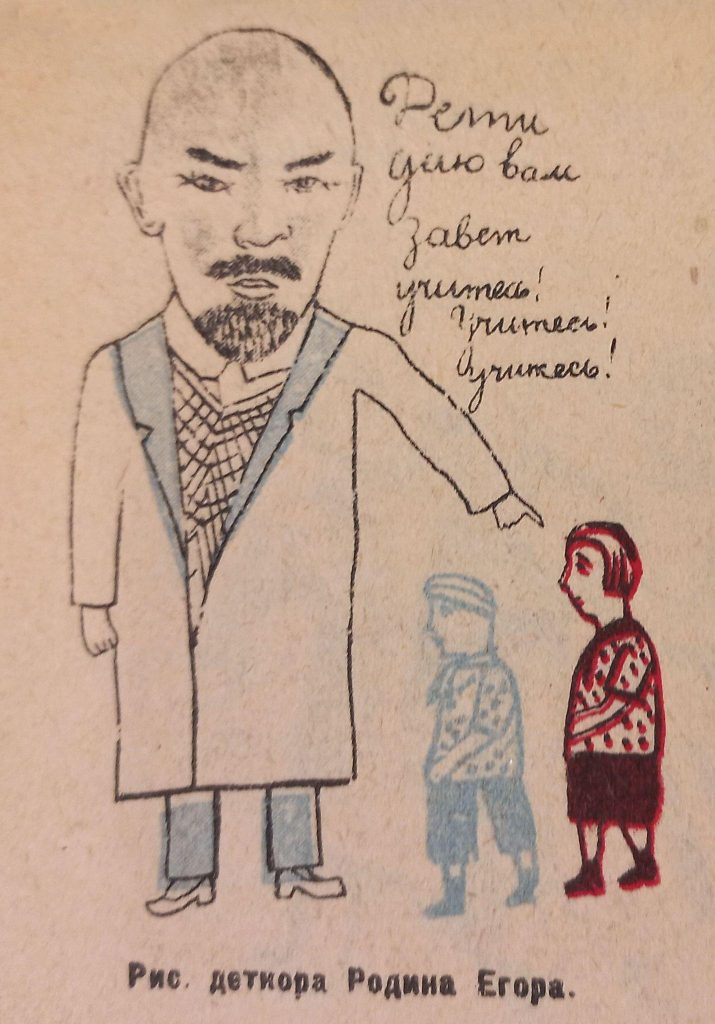 Дети
даю вам
Завет
учитесь!
Учитесь!
Учитесь!
Рис. деткора Родина Егора.